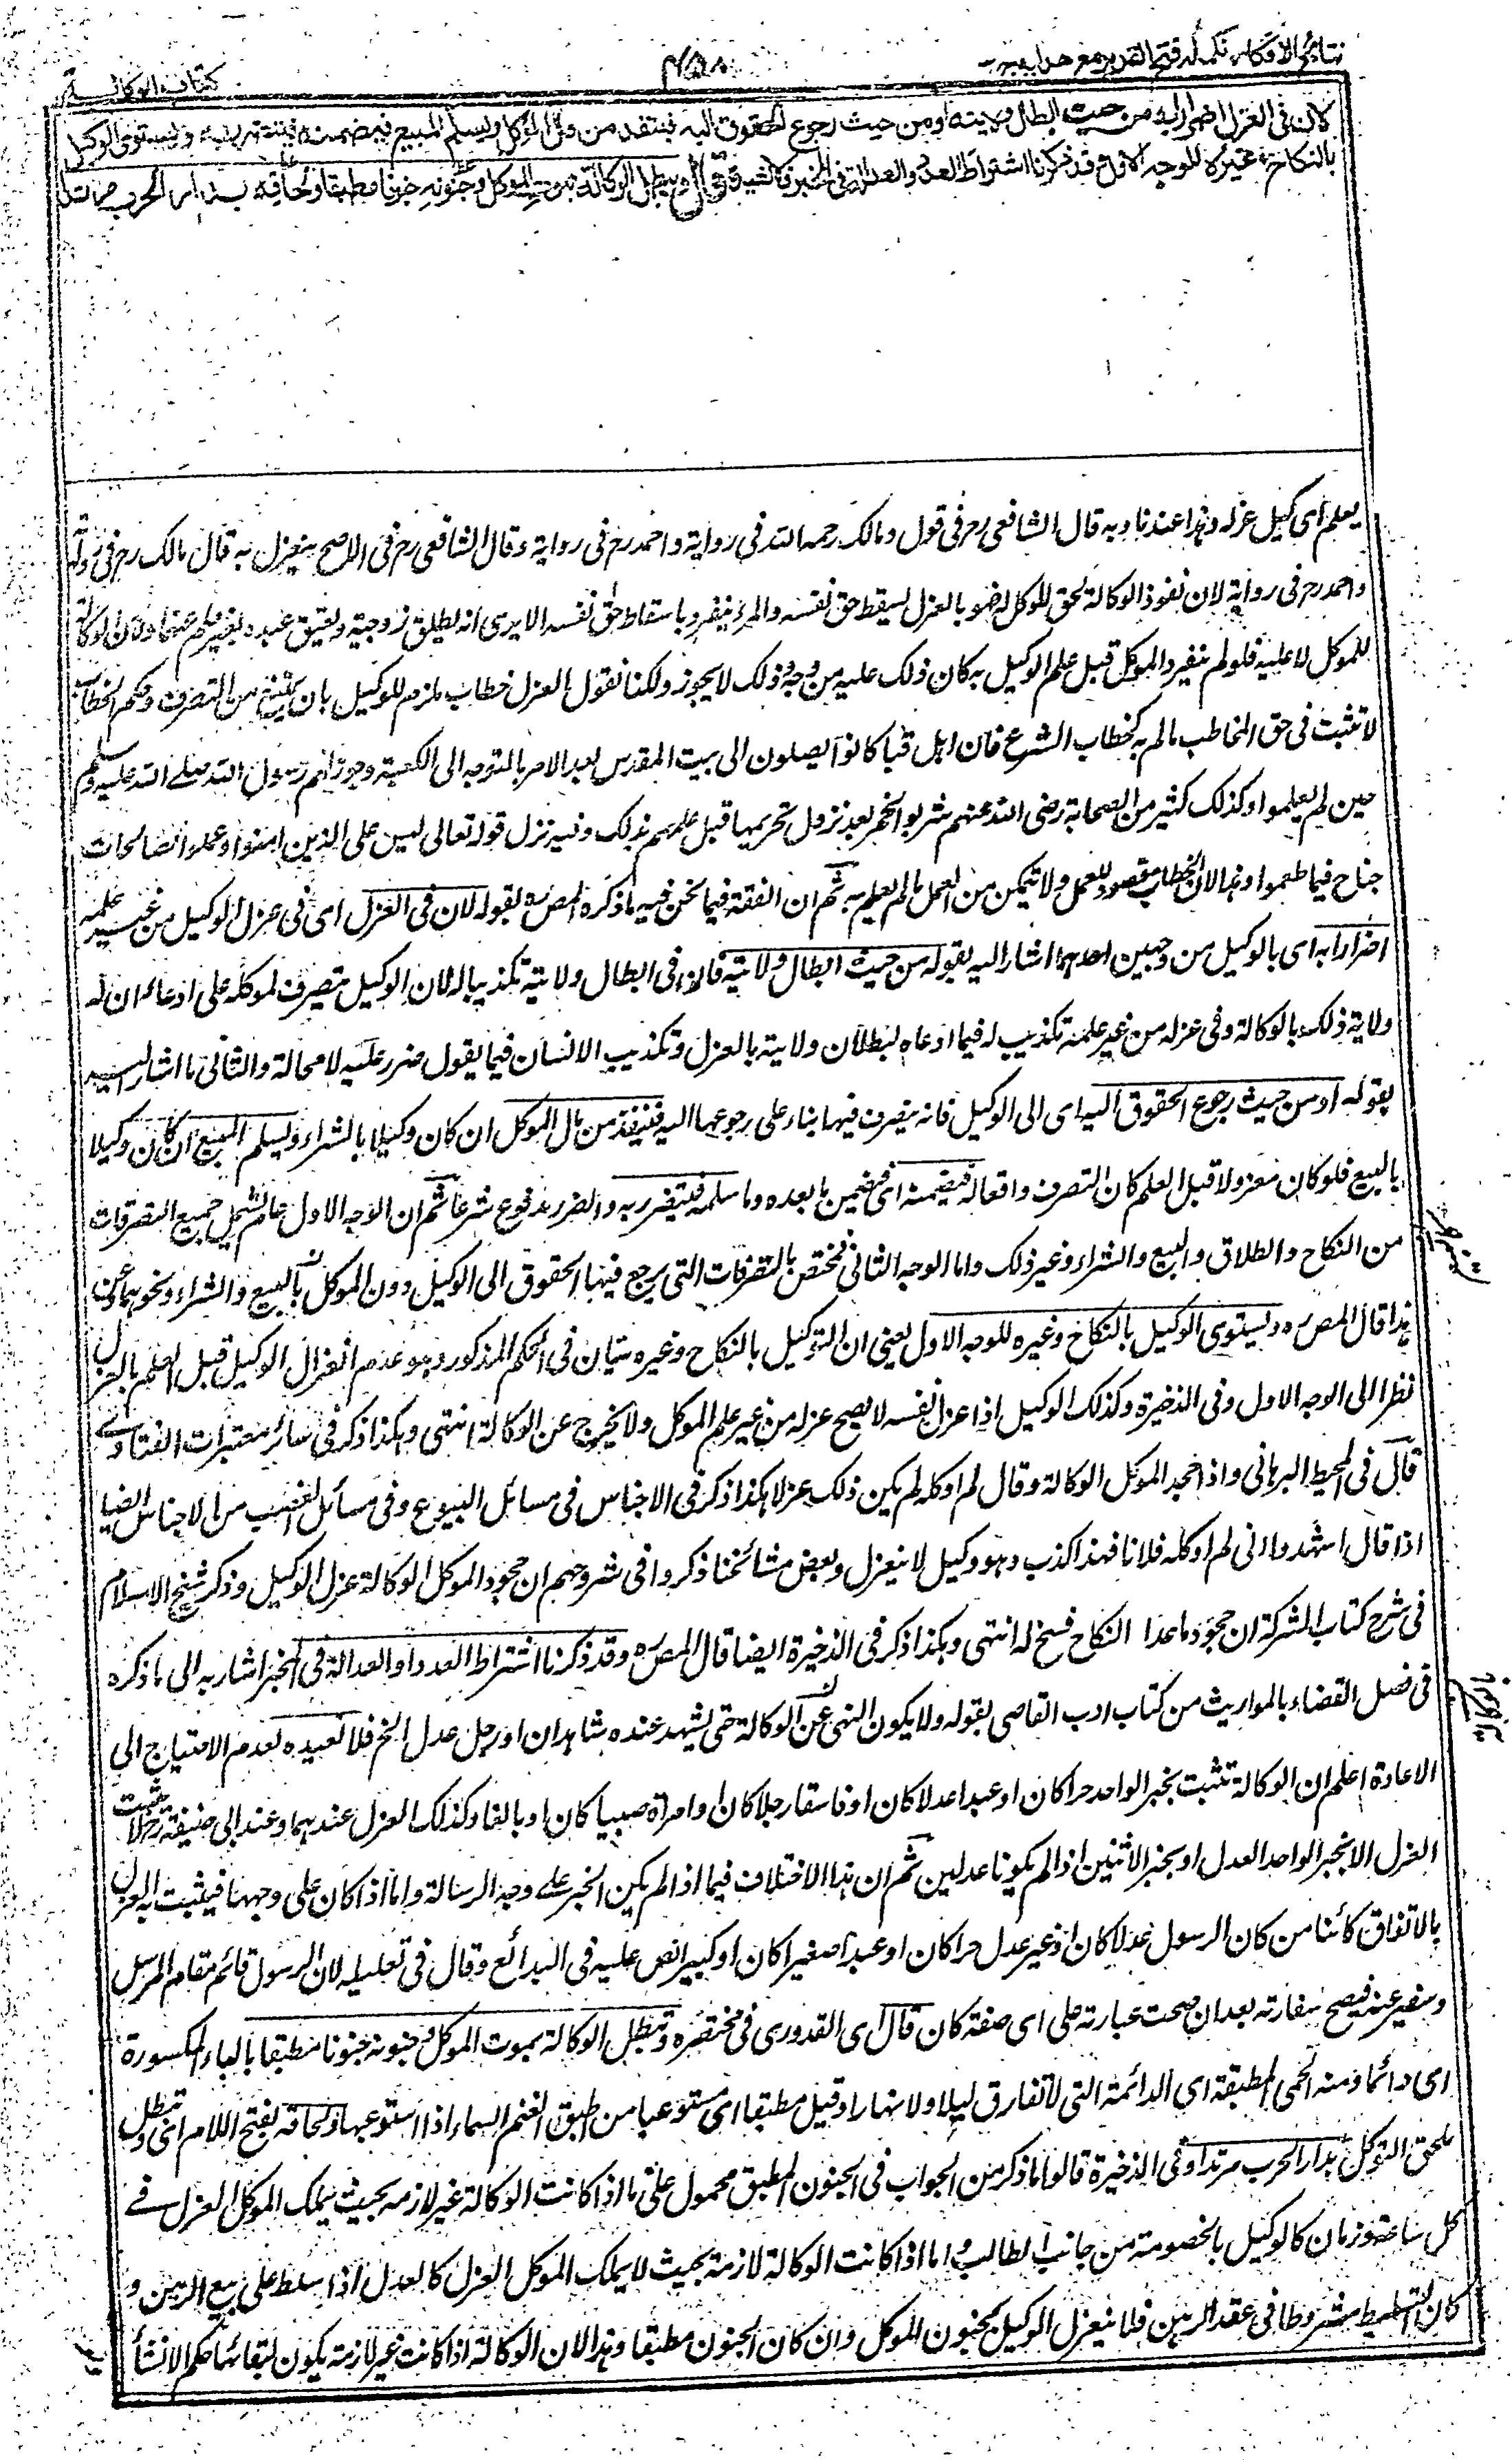 نتائج الافكار تكملہ فتح القدیر مع ھدایہ
٧٥٨
كتاب الوكالة
لان فى العزل اضرارا به من حيث ابطال ولايته او من حيث رجوع الحقوق اليه فينقد من مال الموكل ويسلم المبيع فيضمنه فيتضرر به ويستوى الوكيل
بالنكاح وغيره للوجه الاول وقد ذكرنا اشتراط العدد او العدالة فى المخبر فلا نعيده قال وتبطل الوكالة بموت الموكل وجنونه جنونا مطبقا ولحاقه بدار الحرب مرتدا
يعلم اى كيل عزله وهذا عندنا وبه قال الشافعى رح فى قول ومالك رحمه الله فى رواية واحمد رح فى رواية وقال الشافعى رح فى الاصح ينعزل به قال مالك رح فى رواية
واحمد رح فى رواية لان نفوذ الوكالة لحق للموكل فهو بالعزل يسقط حق نفسه والمرء ينفرد باسقاط حق نفسه الا يرى انه يطلق زوجته ويعتق عبده بغير علم عنهما ولان الوكالة
للموكل لا عليه فلو لم ينفرد الموكل قبل علم الوكيل به كان ذلك عليه من وجه وذلك لا يجوز ولكنا نقول العزل خطاب ملزم للوكيل بان يمتنع من التصرف وحكم الخطاب
لا تثبت فى حق المخاطب مالم به كخطاب الشرع فان اهل قبا كانوا يصلون الى بيت المقدس بعد الامر بالتوجه الى الكعبة وجوز لهم رسول الله صلے الله عليه وسلم
حين لم يعلموا وكذلك كثير من الصحابة رضى الله عنهم شربوا الخمر بعد نزول تحريمها قبل علمهم بذلك وفيه نزل قوله تعالى ليس على الذين امنوا وعملوا الصالحات
جناح فيما طعموا وهذا لان الخطاب مقصود للعمل ولا يتمكن من العمل مالم يعلم به ثم ان الفقه فيما نحن فيه ما ذكره المص رہ بقوله لان فى العزل اى فى عزل الوكيل من غير علمه
اضرارا به اى بالوكيل من وجهين احدهما اشار اليه بقوله من حيث ابطال ولايته فان فى ابطال ولايته تكذيبا له لان الوكيل يتصرف لموكله على ادعاء ان له
ولاية ذلك بالوكالة وفى عزله من غير علمه تكذيب له فيما ادعاه لبطلان ولايته بالعزل وتكذيب الانسان فيما يقول ضرر عليه لا محالة والثانى ما اشار اليه
بقوله او من حيث رجوع الحقوق اليه اى الى الوكيل فانه يتصرف فيها بناء على رجوعها اليه فينقد من مال الموكل ان كان وكيلا بالشراء ويسلم المبيع ان كان وكيلا
بالبيع فلو كان معزولا قبل العلم كان التصرف واقعا له فيضمنه اى فيضمن ما بعده وما سلمه فيتضرر به والضرر مدفوع شرعا ثم ان الوجه الاول عام يشمل جميع التصرفات
من النكاح والطلاق والبيع والشراء وغير ذلك واما الوجه الثانى فمختص بالتصرفات التى يرجع فيها الحقوق الى الوكيل دون الموكل كالبيع والشراء ونحوهما وعن
هذا قال المص رہ ويستوى الوكيل بالنكاح وغيره للوجه الاول يعنى ان التوكيل بالنكاح وغيره سيان فى الحكم المذكور وهو عدم انعزال الوكيل قبل العلم بالعزل
نظرا الى الوجه الاول وفى الذخيرة وكذلك الوكيل اذا عزل نفسه لا يصح عزله من غير علم الموكل ولا يخرج عن الوكالة انتهى وهكذا ذكر فى سائر معتبرات الفتاوے
قال فى المحيط البرهانى واذا جحد الموكل الوكالة وقال لم اوكله لم يكن ذلك عزلا هكذا ذكر فى الاجناس فى مسائل البيوع وفى مسائل الغصب من الاجناس ايضا
اذا قال اشهدوا انى لم اوكله فلانا فهذا كذب وهو وكيل لا ينعزل وبعض مشائخنا ذكروا فى شروحهم ان جحود الموكل الوكالة عزل الوكيل وذكر شيخ الاسلام
فى شرح كتاب الشركة ان جحود ما عدا النكاح فسخ له انتهى وهكذا ذكر فى الذخيرة ايضا قال المص رہ وقد ذكرنا اشتراط العدد او العدالة فى المخبر اشار به الى ما ذكره
فى فصل القضاء بالمواريث من كتاب ادب القاضى بقوله ولا يكون النهى عن الوكالة حتى يشهد عنده شاهدان او رجل عدل الخ فلا نعيده لعدم الاحتياج الى
الاعادة اعلم ان الوكالة تثبت بخبر الواحد حرا كان او عبدا عدلا كان او فاسقا رجلا كان او امراة صبيا كان او بالغا وكذلك العزل عندهما وعند ابى حنيفة رح لا يثبت
العزل الا بخبر الواحد العدل او بخبر الاثنين اذا لم يكونا عدلين ثم ان هذا الاختلاف فيما اذا لم يكن الخبر علے وجه الرسالة واما اذا كان على وجهها فيثبت به العزل
بالاتفاق كائنا من كان الرسول عدلا كان او غير عدل حرا كان او عبدا صغيرا كان او كبيرا نص عليه فى البدائع وقال فى تعليله لان الرسول قائم مقام المرسل
وسفير عنه فيصح سفارته بعد ان صحت عبارته على اى صفة كان قال اى القدورى فى مختصره وتبطل الوكالة بموت الموكل وجنونه جنونا مطبقا بالباء المكسورة
اى دائما ومنه الحمى المطبقة اى الدائمة التى لا تفارق ليلا ولا نهارا وقيل مطبقا اى مستوعبا من اطبق الغيم السماء اذا استوعبها ولحاقه بفتح اللام اى وتبطل
بلحق التوكل بدار الحرب مرتدا وفى الذخيرة قالوا ما ذكر من الجواب فى الجنون المطبق محمول على ما اذا كانت الوكالة غير لازمه بحيث يملك الموكل العزل فے
كل ساعة وزمان كالوكيل بالخصومة من جانب الطالب واما اذا كانت الوكالة لازمة بحيث لا يملك الموكل العزل كالعدل اذا سلط على بيع الرهن و
كان التسليط مشروطا فى عقد الرهن فلا ينعزل الوكيل بجنون الموكل وان كان الجنون مطبقا وهذا لان الوكالة اذا كانت غير لازمة يكون لبقائها حكم الانشأ